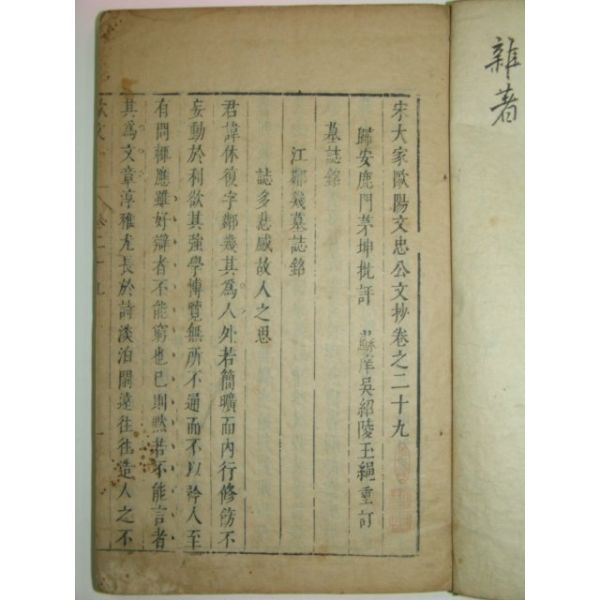 雜著
宋大家歐陽文忠公文抄卷之二十九
歸安鹿門茅坤批評 吳紹陵玉繩重訂
墓誌銘
江鄰幾墓誌銘
誌多悲感故人之思
君諱休復字鄰幾其為人外若簡曠而內行修飭不
妄動於利欲其強學博覽無所不通而不以矜人至
有問輒應雖好辯者不能窮也已則默若不能言者
其為文章淳雅尤長於詩淡泊閒遠往往造人之不
歐文 卷二十九